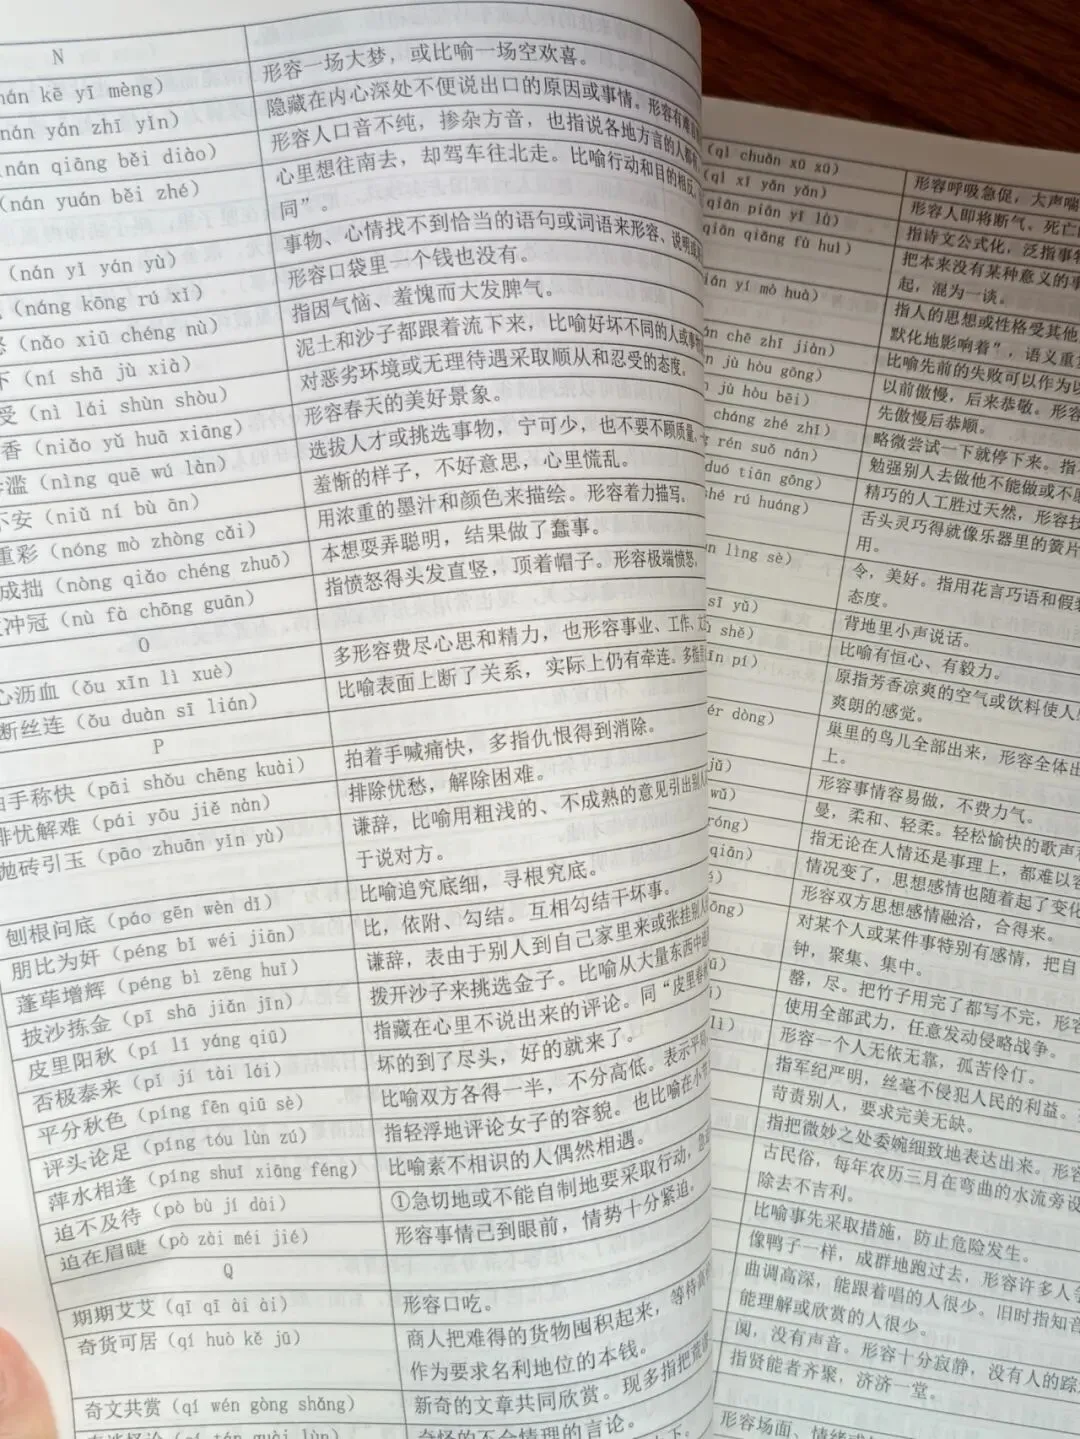 N
形容一场大梦，或比喻一场空欢喜。
nán kē yī mèng)
隐藏在内心深处不便说出口的原因或事情。形容有难
nán yán zhī yǐn)
形容人口音不纯，掺杂方音，也指说各地方言的人都有
(nán qiāng běi diào)
心里想往南去，却驾车往北走。比喻行动和目的相反
(nán yuán běi zhé)
同”。
事物、心情找不到恰当的语句或词语来形容、说明或
(nán yǐ yán yù)
形容口袋里一个钱也没有。
(náng kōng rú xǐ)
指因气恼、羞愧而大发脾气。
(nǎo xiū chéng nù)
泥土和沙子都跟着流下来，比喻好坏不同的人或事物
下 (ní shā jù xià)
对恶劣环境或无理待遇采取顺从和忍受的态度。
受 (nì lái shùn shòu)
形容春天的美好景象。
香 (niǎo yǔ huā xiāng)
选拔人才或挑选事物，宁可少，也不要不顾质量
滥 (nìng quē wú làn)
羞惭的样子，不好意思，心里慌乱。
不安 (niǔ ní bù ān)
用浓重的墨汁和颜色来描绘。形容着力描写。
重彩 (nóng mò zhòng cǎi)
本想耍弄聪明，结果做了蠢事。
成拙 (nòng qiǎo chéng zhuō)
指愤怒得头发直竖，顶着帽子。形容极端愤怒。
冲冠 (nù fà chōng guān)
O
多形容费尽心思和精力，也形容事业、工作、
心沥血 (ǒu xīn lì xuè)
比喻表面上断了关系，实际上仍有牵连。多指
断丝连 (ǒu duàn sī lián)
P
拍着手喊痛快，多指仇恨得到消除。
手称快 (pāi shǒu chēng kuài)
排除忧愁，解除困难。
排忧解难 (pái yōu jiě nàn)
谦辞，比喻用粗浅的、不成熟的意见引出别人
抛砖引玉 (pāo zhuān yǐn yù)
于说对方。
比喻追究底细，寻根究底。
刨根问底 (páo gēn wèn dǐ)
比，依附、勾结。互相勾结干坏事。
朋比为奸 (péng bǐ wéi jiān)
谦辞，表由于别人到自己家里来或张挂别人
蓬荜增辉 (péng bì zēng huī)
拨开沙子来挑选金子。比喻从大量东西中
披沙拣金 (pī shā jiǎn jīn)
指藏在心里不说出来的评论。同“皮里春
皮里阳秋 (pí lǐ yáng qiū)
坏的到了尽头，好的就来了。
否极泰来 (pǐ jí tài lái)
比喻双方各得一半，不分高低。表示平局
平分秋色 (píng fēn qiū sè)
指轻浮地评论女子的容貌。也比喻在小节
评头论足 (píng tóu lùn zú)
比喻素不相识的人偶然相遇。
萍水相逢 (píng shuǐ xiāng féng)
①急切地或不能自制地要采取行动，
迫不及待 (pò bù jí dài)
形容事情已到眼前，情势十分紧迫。
迫在眉睫 (pò zài méi jié)
Q
期期艾艾 (qī qī ài ài)
形容口吃。
奇货可居 (qí huò kě jū)
商人把难得的货物囤积起来，等待高
作为要求名利地位的本钱。
奇文共赏 (qí wén gòng shǎng)
新奇的文章共同欣赏。现多指把荒谬
奇怪的不合情理的言论。
(qì chuǎn xū xū)
形容呼吸急促，大声喘
(qì xī yǎn yǎn)
形容人即将断气，死亡
qiān piān yī lǜ)
指诗文公式化，泛指事物
qiān qiǎng fù huì)
把本来没有某种意义的事
起，混为一谈。
ián yí mò huà)
指人的思想或性格受其他
默化地影响着”，语义重
án chē zhī jiàn)
比喻先前的失败可以作为以
n jù hòu gōng)
以前傲慢，后来恭敬。形容
n jù hòu bēi)
先傲慢后恭顺。
cháng zhé zhǐ)
略微尝试一下就停下来。指
rén suǒ nán)
勉强别人去做他不能做或不愿
duó tiān gōng)
精巧的人工胜过天然，形容技
shé rú huáng)
舌头灵巧得就像乐器里的簧片
用。
n lìng sè)
令，美好。指用花言巧语和假装
态度。
sī yǔ)
背地里小声说话。
shě)
比喻有恒心、有毅力。
īn pí)
原指芳香凉爽的空气或饮料使人
爽朗的感觉。
ér dòng)
巢里的鸟儿全部出来，形容全体出
上。
jǔ)
形容事情容易做，不费力气。
wǔ)
曼，柔和、轻柔。轻松愉快的歌声
róng)
指无论在人情还是事理上，都难以容
qiān)
情况变了，思想感情也随着起了变化
形容双方思想感情融洽，合得来。
ōng)
对某个人或某件事特别有感情，把自
钟，聚集、集中。
罄，尽。把竹子用完了都写不完，形容
使用全部武力，任意发动侵略战争。
lì)
形容一个人无依无靠，孤苦伶仃。
指军纪严明，丝毫不侵犯人民的利益。
苛责别人，要求完美无缺。
指把微妙之处委婉细致地表达出来。形容
古民俗，每年农历三月在弯曲的水流旁设
除去不吉利。
比喻事先采取措施，防止危险发生。
像鸭子一样，成群地跑过去，形容许多人
曲调高深，能跟着唱的人很少。旧时指知音
能理解或欣赏的人很少。
阒，没有声音。形容十分寂静，没有人的踪
指贤能者齐聚，济济一堂。
形容场面、情绪或